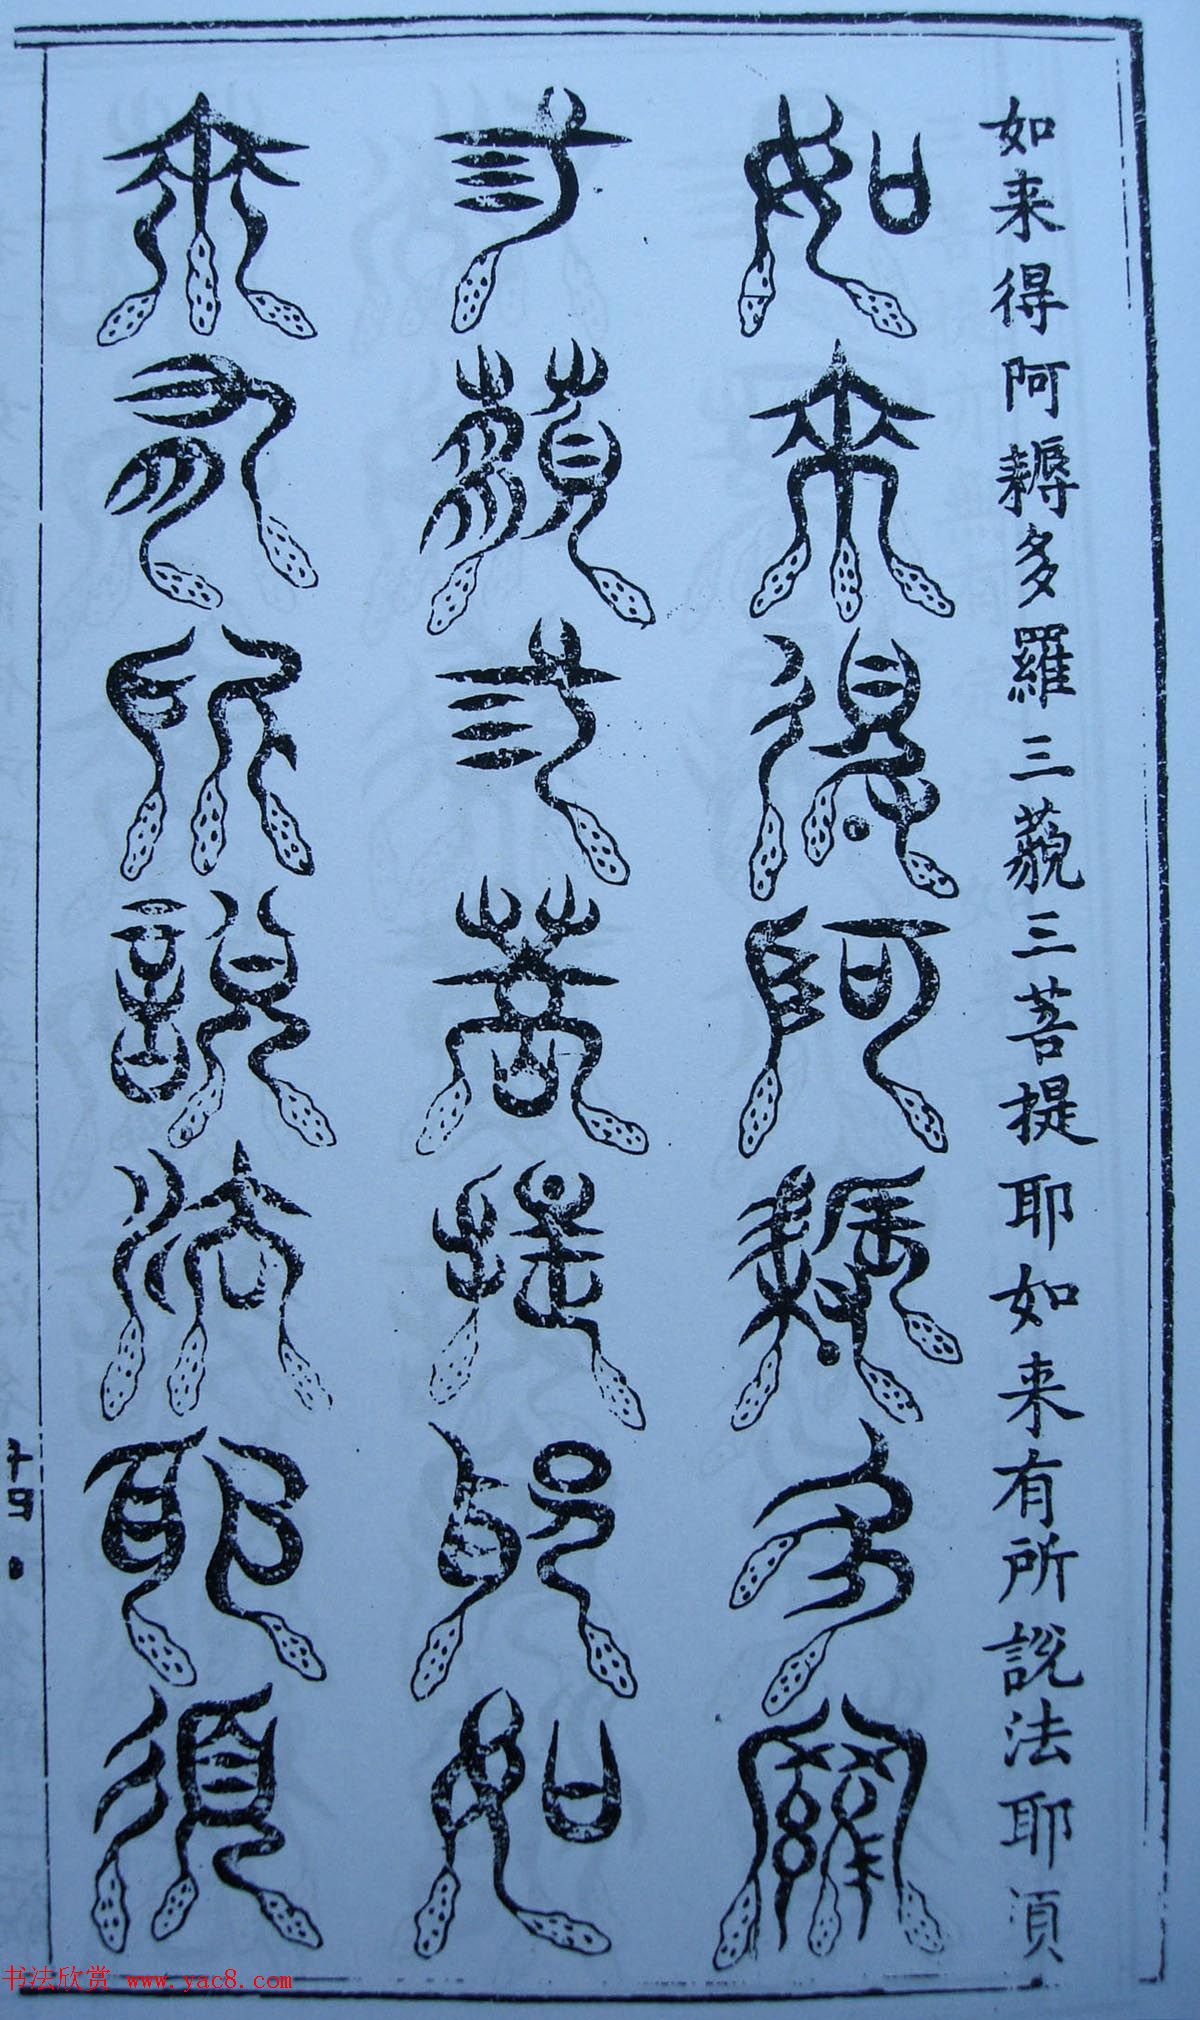 如来得阿耨多羅三藐三菩提耶如来有所說法耶須
如来得阿耨多羅
三藐三菩提耶如
来有所說法耶須
十四
书法欣赏 www.yac8.com